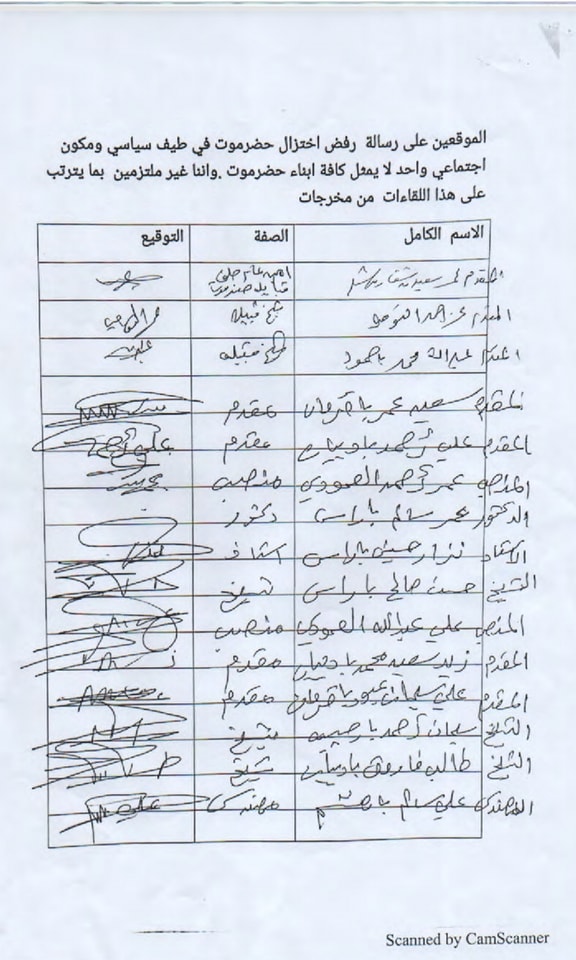 الموقعين على رسالة رفض اختزال حضرموت في طيف سياسي ومكون
اجتماعي واحد لا يمثل كافة ابناء حضرموت .واننا غير ملتزمين بما يترتب
على هذا اللقاءات من مخرجات
الاسم الكامل الصفة التوقيع
المقدم عمر سعيد
المقدم عمر احمد شيخ قبيله
المقدم عبدالله محمد باحمود شيخ قبيله
المقدم سعيد عمر باقروان مقدم
المقدم علي أحمد بادبيان مقدم علي أحمد
المنصب عمر أحمد العمودي منصب
الدكتور عمر سالم باراس دكتور
الاستاذ نزار حسين باراس استاذ
الشيخ حسن صالح باراس شيخ
المنصب علي عبدالله العمودي منصب
المقدم زيد سعيد محمد بادبيان مقدم
المقدم علي سليمان عبود باقروان مقدم
الشيخ سليمان أحمد شيخ
الشيخ طالب فاروق بادبيان شيخ
المهندس علي سالم مهندس علي
Scanned by CamScanner